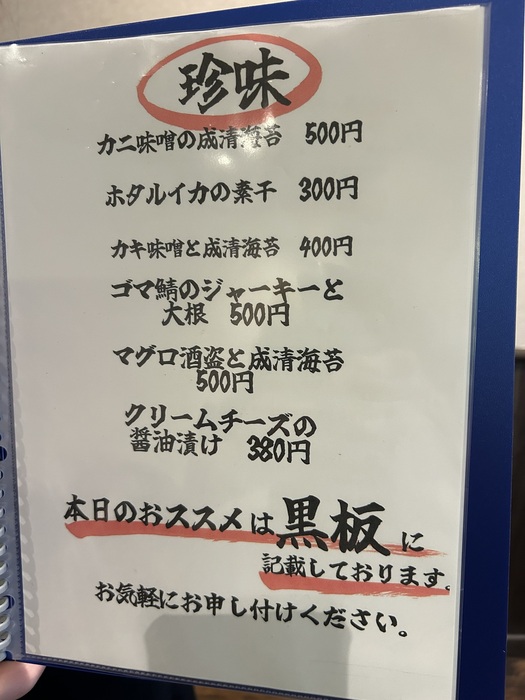 珍味
カニ味噌の成清海苔 500円
ホタルイカの素干 300円
カキ味噌と成清海苔 400円
ゴマ鯖のジャーキーと
大根 500円
マグロ酒盗と成清海苔
500円
クリームチーズの
醤油漬け 380円
本日のおススメは黒板に
記載しております。
お気軽にお申し付けください。